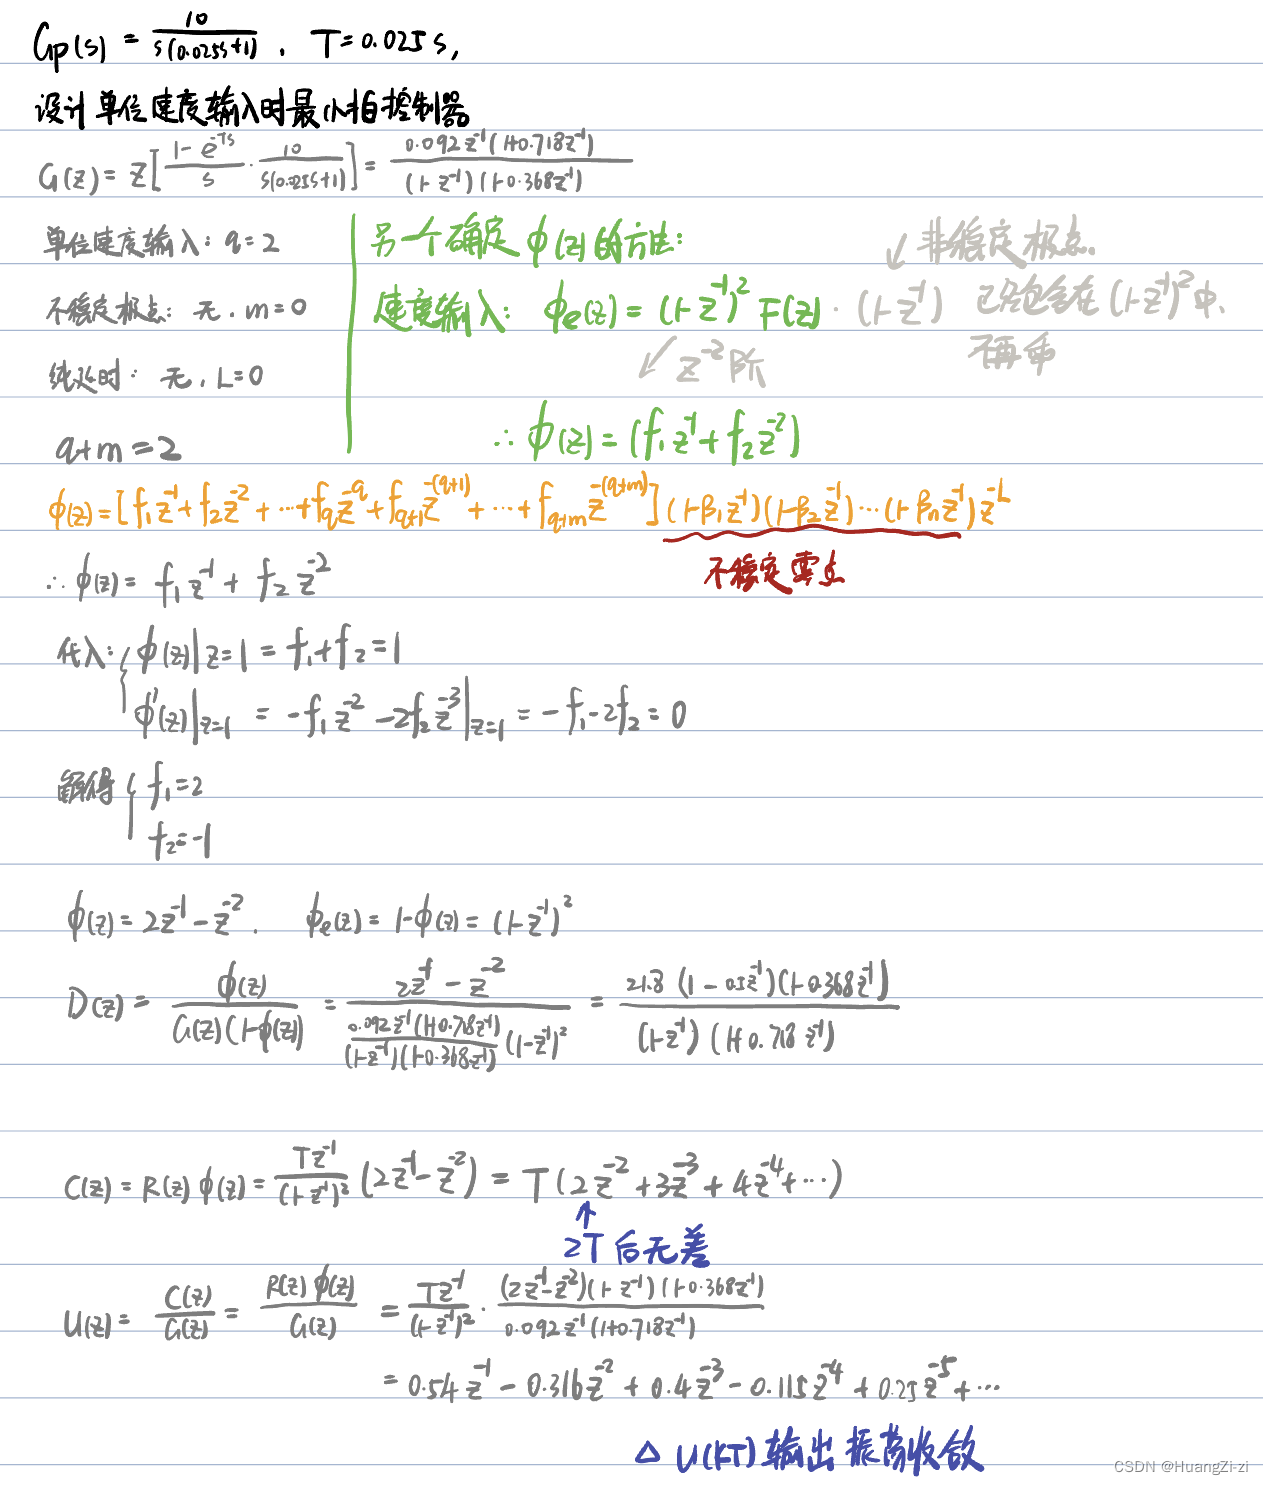 Gp(s) = 10 / s(0.025s+1) . T=0.025s,
设计单位速度输入时最小拍控制器
G(z) = Z[ (1-e^-Ts)/s · 10/s(0.025s+1) ] = 0.092z^-1(1+0.718z^-1) / (1-z^-1)(1-0.368z^-1)
单位速度输入: q=2
不稳定极点: 无, m=0
纯延时: 无, L=0
q+m=2
另一个确定 ϕ(z)的方法:
速度输入: ϕe(z) = (1-z^-1)^2 F(z) · (1-z^-1) 已经包含在(1-z^-1)^2中,
↙ 非稳定极点.
不再乘
↙ z^-2 阶
∴ ϕ(z) = (f1z^-1 + f2z^-2)
ϕ(z) = [f1z^-1 + f2z^-2 + ··· + fqz^-q + fq+1z^-(q+1) + ··· + fq+mz^-(q+m)](1-β1z^-1)(1-β2z^-1)···(1-βnz^-1)z^-L
不稳定零点
∴ ϕ(z) = f1z^-1 + f2z^-2
代入: { ϕ(z)|z=1 = f1+f2 = 1
ϕ'(z)|z=1 = -f1z^-2 - 2f2z^-3 |z=1 = -f1-2f2 = 0
解得 { f1=2
f2=-1
ϕ(z) = 2z^-1 - z^-2 . ϕe(z) = 1-ϕ(z) = (1-z^-1)^2
D(z) = ϕ(z) / G(z)(1-ϕ(z)) = (2z^-1 - z^-2) / [0.092z^-1(1+0.718z^-1) / (1-z^-1)(1-0.368z^-1)] (1-z^-1)^2 = 21.8(1-0.5z^-1)(1-0.368z^-1) / (1-z^-1)(1+0.718z^-1)
C(z) = R(z)ϕ(z) = Tz^-1 / (1-z^-1)^2 (2z^-1 - z^-2) = T(2z^-2 + 3z^-3 + 4z^-4 + ···)
↑
2T 后无差
U(z) = C(z)/G(z) = R(z)ϕ(z)/G(z) = Tz^-1 / (1-z^-1)^2 · (2z^-1 - z^-2)(1-z^-1)(1-0.368z^-1) / 0.092z^-1(1+0.718z^-1)
= 0.54z^-1 - 0.316z^-2 + 0.4z^-3 - 0.115z^-4 + 0.25z^-5 + ···
△ U(kT) 输出振荡收敛
CSDN @HuangZi-zi